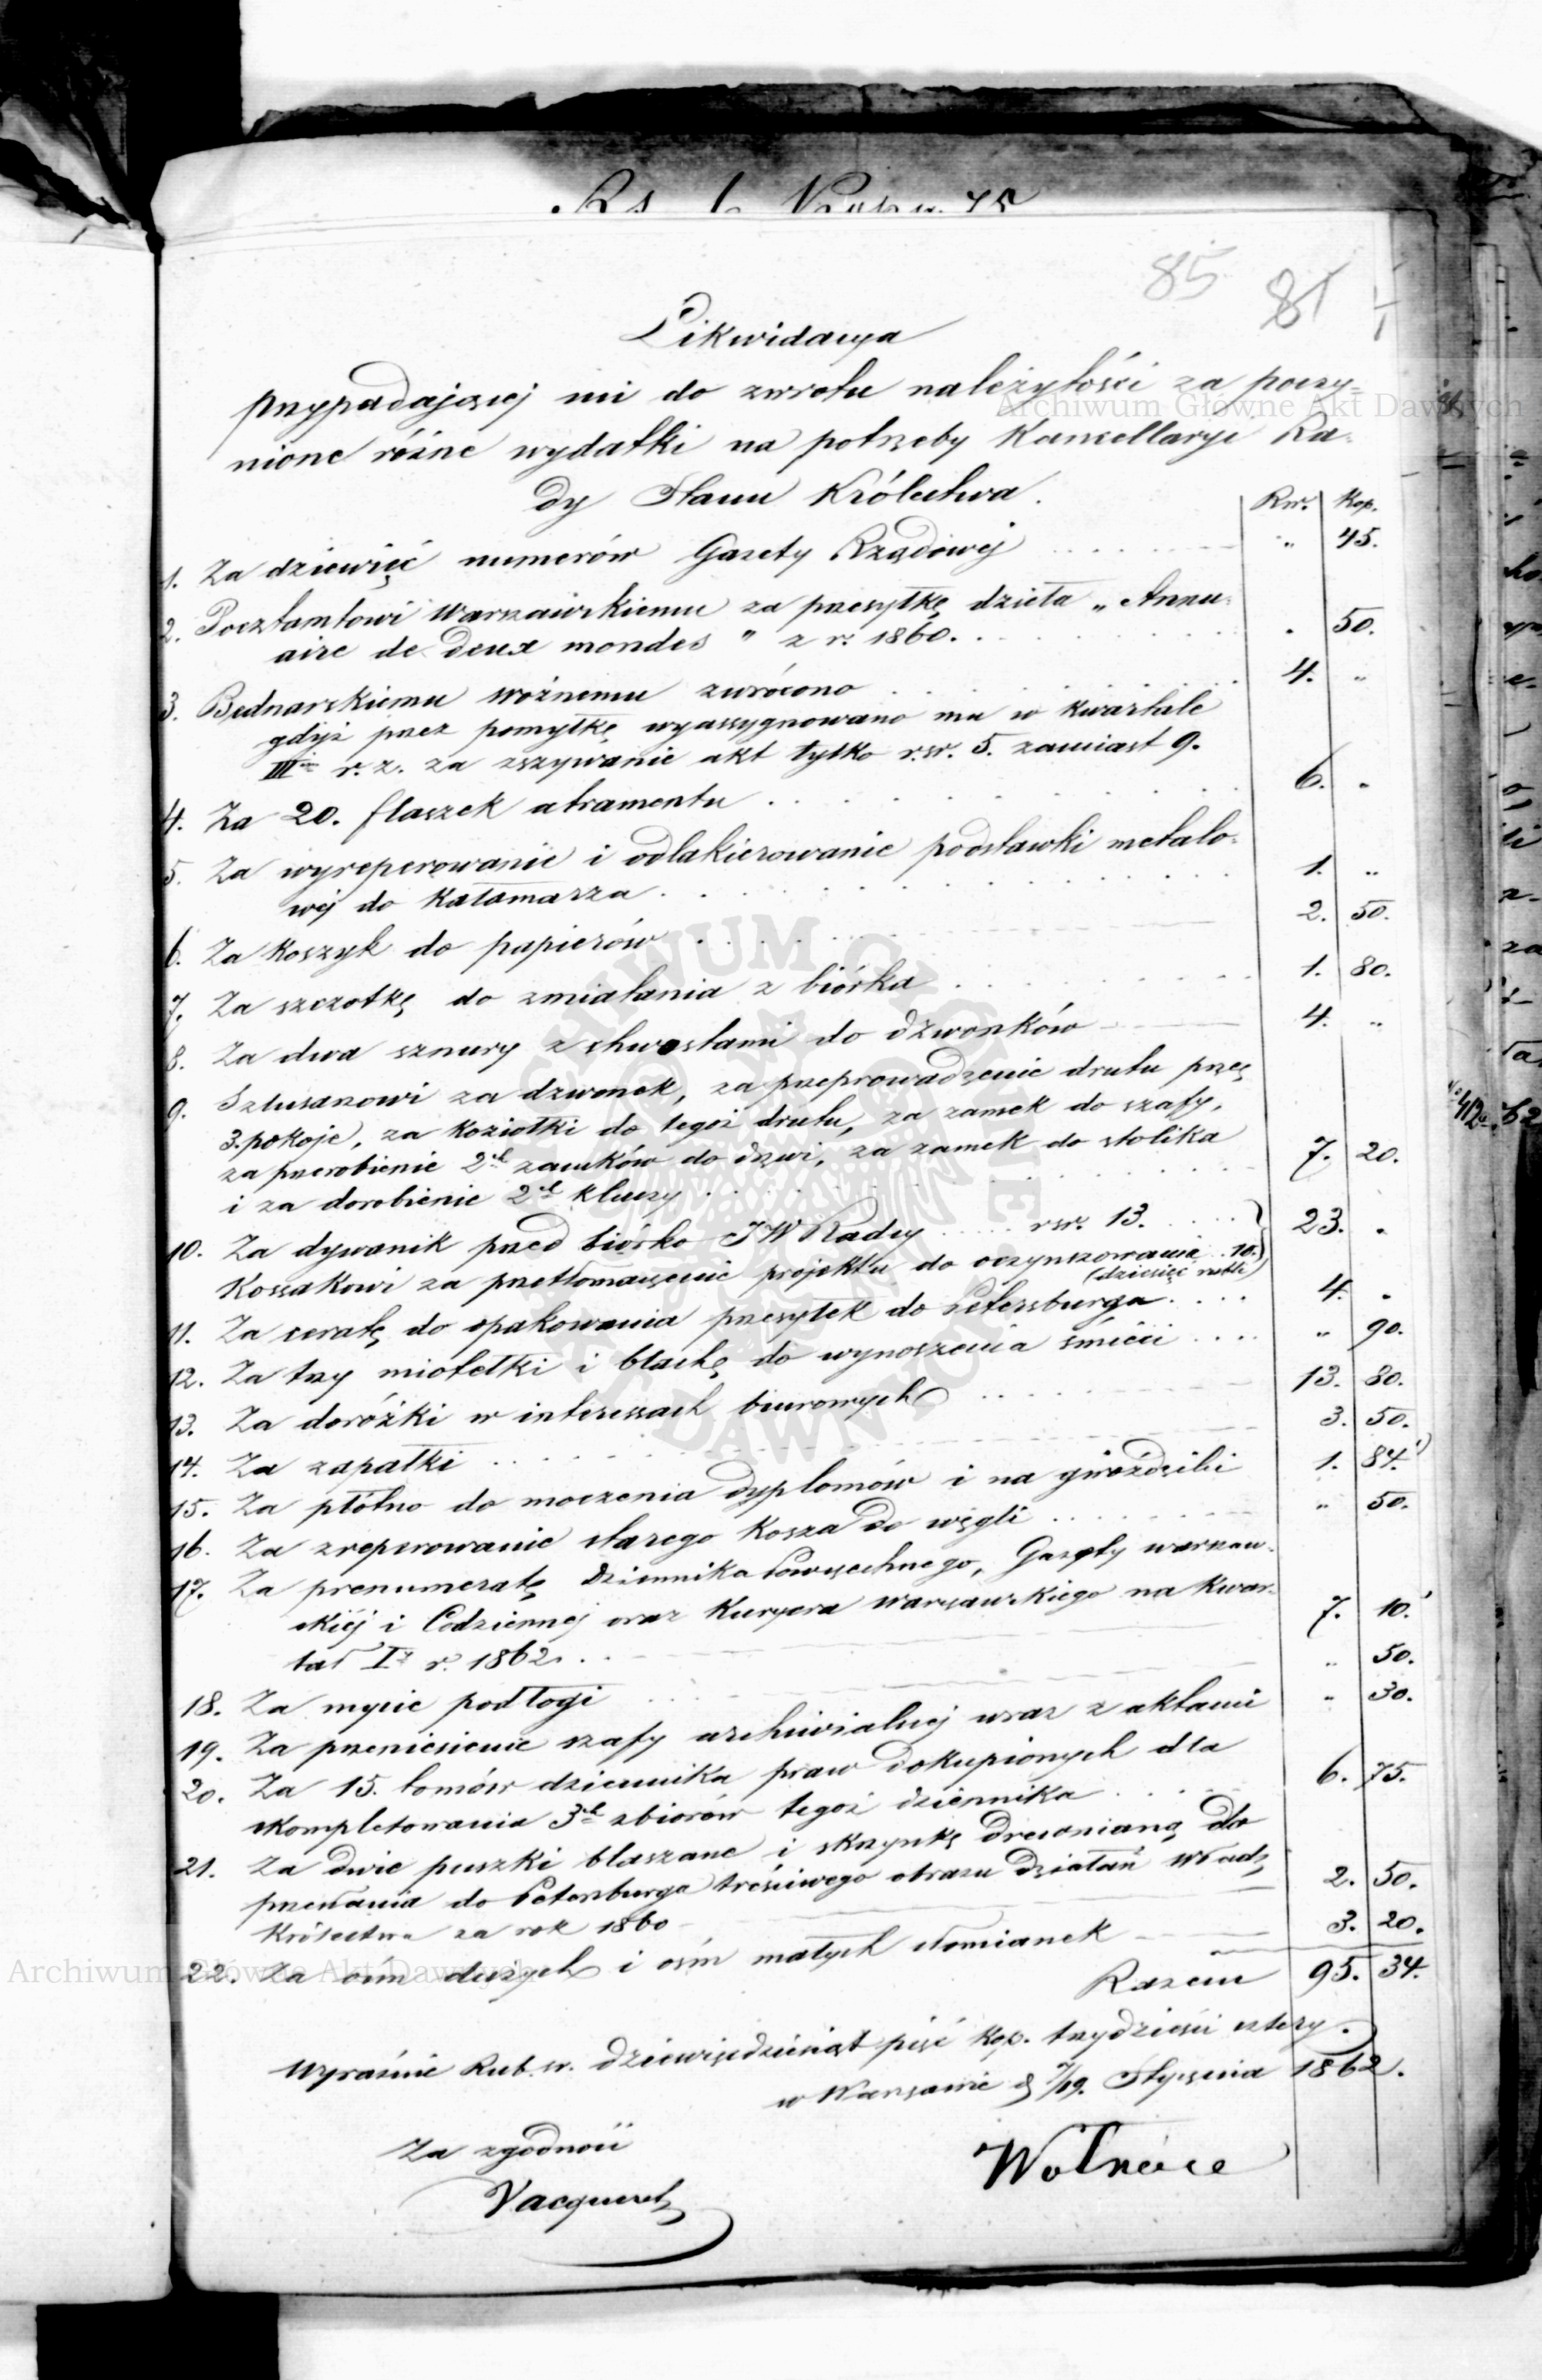 85 81
Likwidacya
przypadającej mi do zwrotu należytości za poczy-
nione różne wydatki na potrzeby Kancellaryi Ra-
dy Stanu Królestwa.
Rsr. Kop.
1. Za dziewięć numerów Gazety Rządowej " 45.
2. Pocztamtowi Warszawskiemu za przesyłkę dzieła „Annu-
aire de deux mondes" z r. 1860. " 50.
3. Bednarskiemu woźnemu zwrócono 4. "
gdyż przez pomyłkę wyassygnowano mu w kwartale
III r. z. za zszywanie akt tylko rsr. 5. zamiast 9.
4. Za 20. flaszek atramentu 6. "
5. Za wyreperowanie i odlakierowanie podstawki metalo-
wej do Kałamarza 1. "
6. Za koszyk do papierów 2. 50.
7. Za szczotkę do zmiatania z biórka 1. 80.
8. Za dwa sznury z chwostami do dzwonków 4. "
9. Szlusarzowi za dzwonek, za przeprowadzenie drutu przez
3. pokoje, za koziołki do tegoż drutu, za zamek do szafy,
za przerobienie 2ch zamków do drzwi, za zamek do stolika
i za dorobienie 2ch kluczy 7. 20.
10. Za dywanik przed biórko JW Radcy rsr. 13. 23. "
Kossakowi za przetłomaczenie projektu do oczynszowania 10.
(dziesięć rubli)
11. Za ceratę do opakowania przesyłek do Petersburga 4. "
12. Za trzy miotełki i blachę do wynoszenia śmieci " 90.
13. Za dorożki w interessach biurowych 13. 80.
14. Za zapałki 3. 50.
15. Za płótno do moczenia dyplomów i na gwoździki 1. 84.
16. Za zreperowanie starego Kosza do węgli " 50.
17. Za prenumeratę Dziennika Powszechnego, Gazety warszaw-
skiej i Codziennej oraz Kuryera Warszawskiego na Kwar-
tał I r. 1862. 7. 10.
18. Za mycie podłogi " 50.
19. Za przeniesienie szafy archiwialnej wraz z aktami " 30.
20. Za 15. tomów dziennika praw dokupionych dla
skompletowania 3ch zbiorów tegoż dziennika 6. 75.
21. Za dwie puszki blaszane i skrzynkę drewnianą do
przesłania do Petersburga treściwego obrazu działań władz
Królestwa za rok 1860 2. 50.
22. Za ośm dużych i ośm małych słomianek 3. 20.
Razem 95. 34.
Wyraźnie Rub. sr. dziewięćdziesiąt pięć Kop. trzydzieści cztery.
w Warszawie d. 7/19. Stycznia 1862.
Za zgodność
Vacqueret
Archiwum Główne Akt Dawnych
Archiwum Główne Akt Dawnych
ARCHIWUM GŁÓWNE AKT DAWNYCH